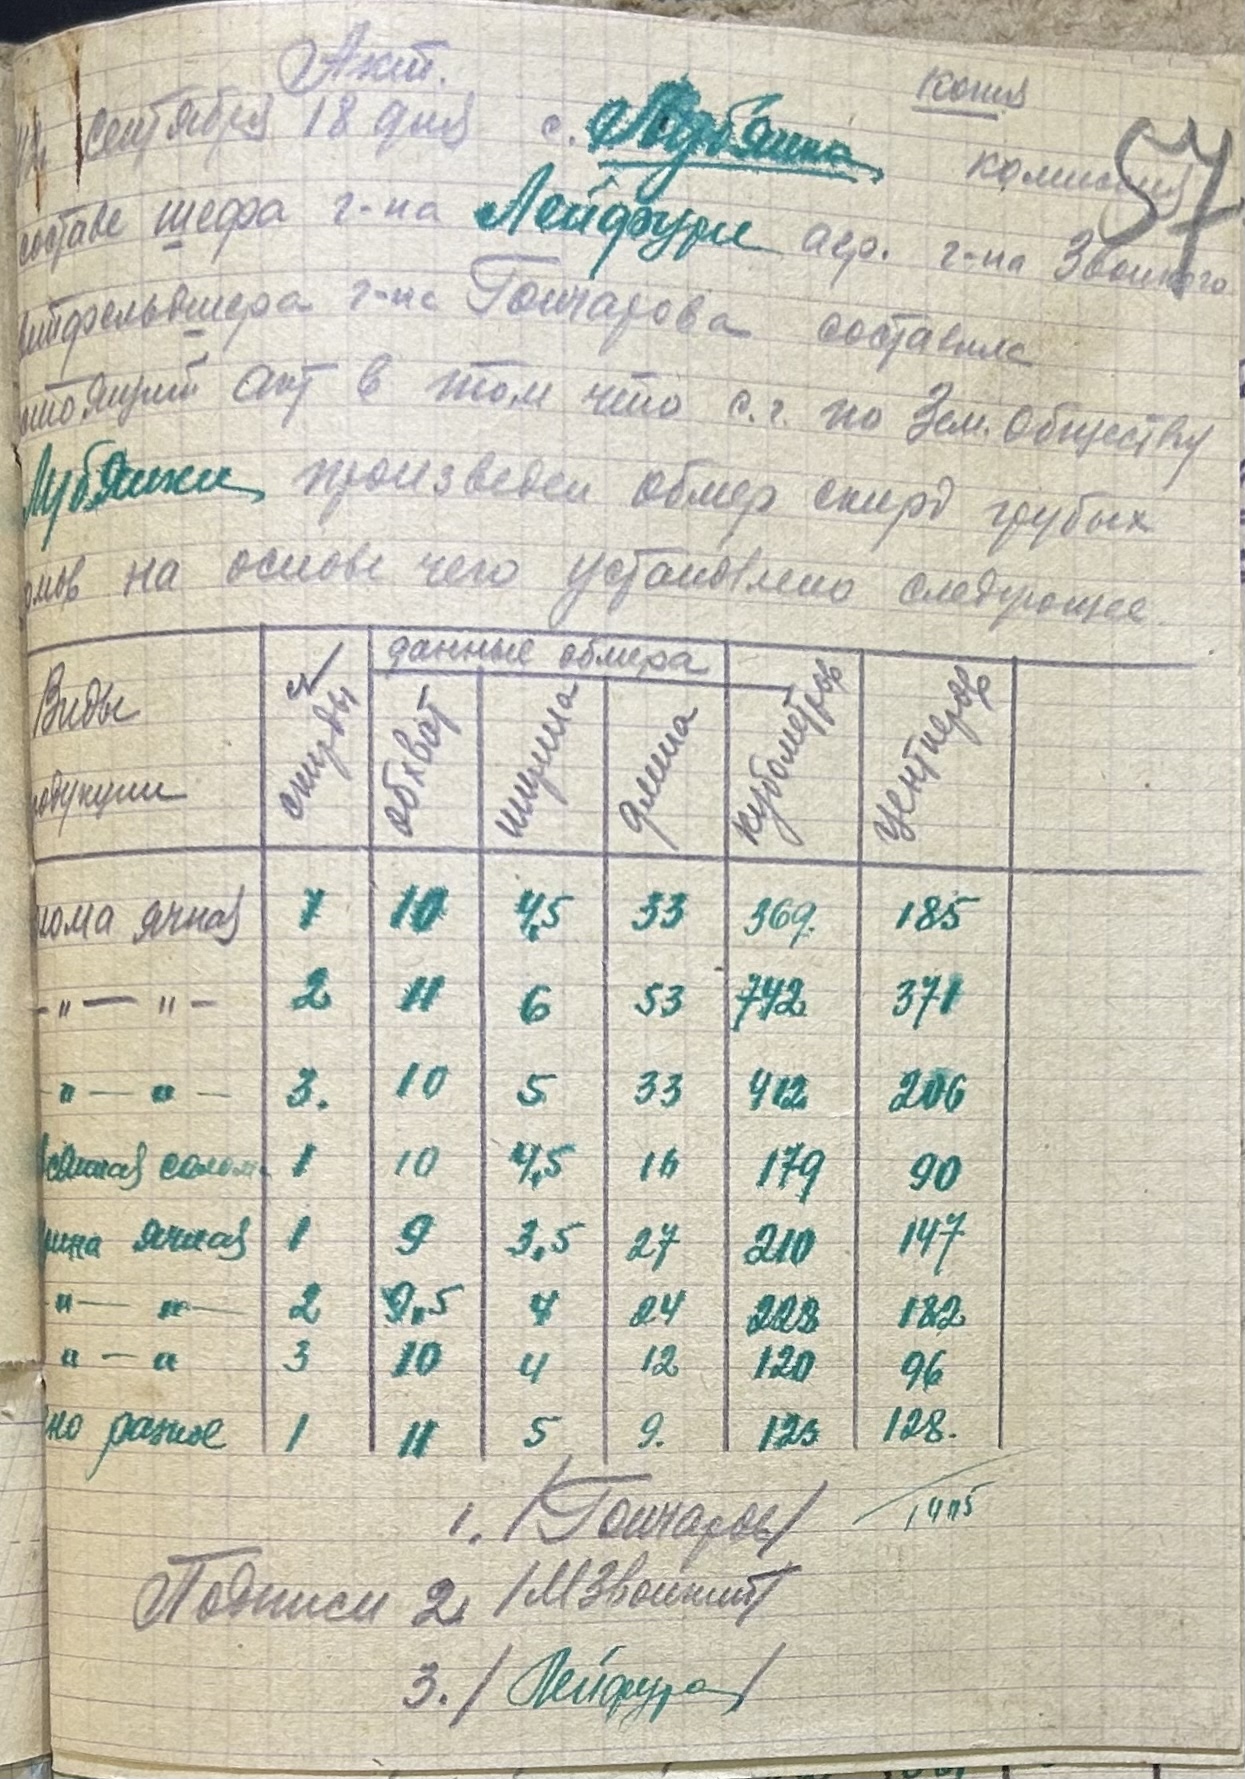 Акт.
копия
57
сентября 18 дня с. Лубянка комиссия
составе шефа г-на Лейфури агр. г-на Звонкого
ветфельдшера г-на Гончарова составила
стоящий акт в том что с.г. по Зем. обществу
Лубянки произведен обмер скирд грубых
рмов на основе чего установлено следующее.
Виды родукции | № скирды | данные обмера | кубометров | центнеров
обхват | ширина | длина
лома ячная 1 10 4,5 33 369. 185
-"- "- 2 11 6 53 742 371
-"-"- 3. 10 5 33 412 206
всянная солом. 1 10 4,5 16 179 90
кина ячная 1 9 3,5 27 210 147
"- "- 2 9,5 4 24 228 182
"-" 3 10 4 12 120 96
но разное 1 11 5 9. 123 128.
1405
1. /Гончаров/
Подписи 2. /МЗвонкий/
3. /Лейфура/